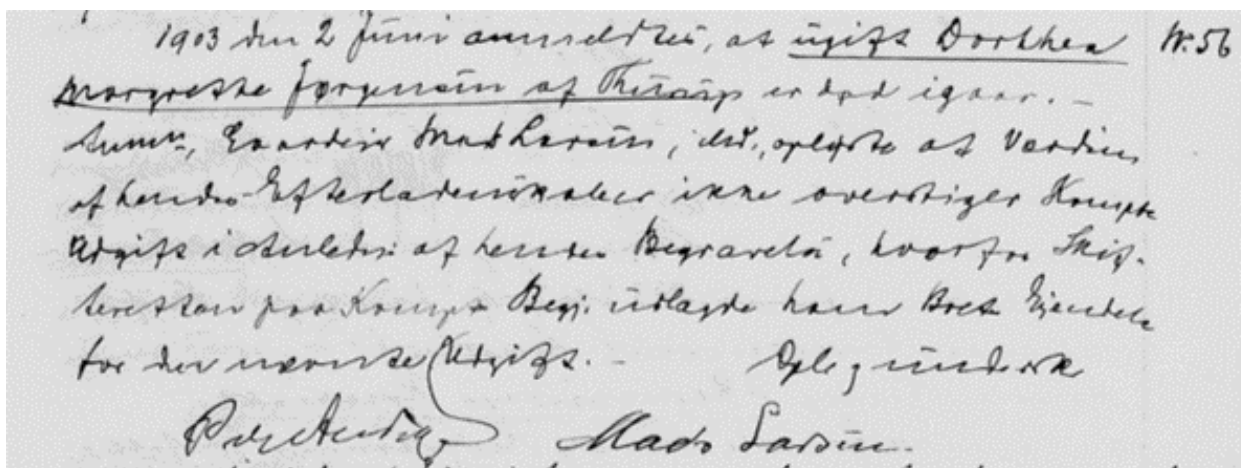 1903 den 2 Juni anmeldtes, at ugift Dorthea N. 56
Margrethe Jørgensen af Thurup er død igaar. -
Anmn, Gaardejer Mads Larsen, oplyste at Værdien
af hendes Efterladenskaber ikke overstiger Kompts
Udgift i Anledn: af hendes Begravelse, hvorfor Skif-
teretten paa Kompts Begj. udlagde ham Boets Ejendele
for den nævnte Udgift. - Opl. underskr
Mads Larsen.